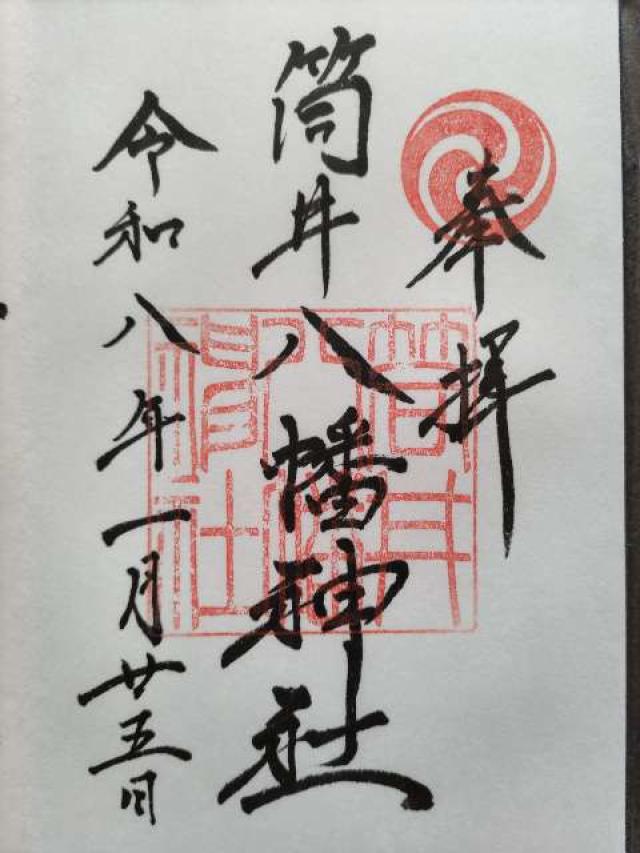 奉拝
筒井八幡神社
令和八年一月廿五日
筒井八幡神社